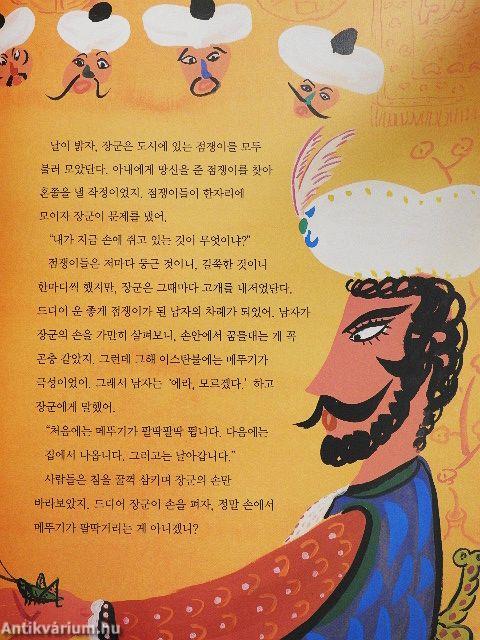 날이 밝자, 장군은 도시에 있는 점쟁이를 모두
불러 모았단다. 아내에게 망신을 준 점쟁이를 찾아
혼쭐을 낼 작정이었지. 점쟁이들이 한자리에
모이자 장군이 문제를 냈어.
“내가 지금 손에 쥐고 있는 것이 무엇이냐?”
점쟁이들은 저마다 둥근 것이니, 길쭉한 것이니
한마디씩 했지만, 장군은 그때마다 고개를 내저었단다.
드디어 운 좋게 점쟁이가 된 남자의 차례가 되었어. 남자가
장군의 손을 가만히 살펴보니, 손안에서 꿈틀대는 게 꼭
곤충 같았지. 그런데 그해 이스탄불에는 메뚜기가
극성이었어. 그래서 남자는 ‘에라, 모르겠다.’ 하고
장군에게 말했어.
“처음에는 메뚜기가 팔딱팔딱 뜁니다. 다음에는
집에서 나옵니다. 그리고는 날아갑니다.”
사람들은 침을 꿀꺽 삼키며 장군의 손만
바라보았지. 드디어 장군이 손을 펴자, 정말 손에서
메뚜기가 팔딱거리는 게 아니겠니?
Antikvárium.hu